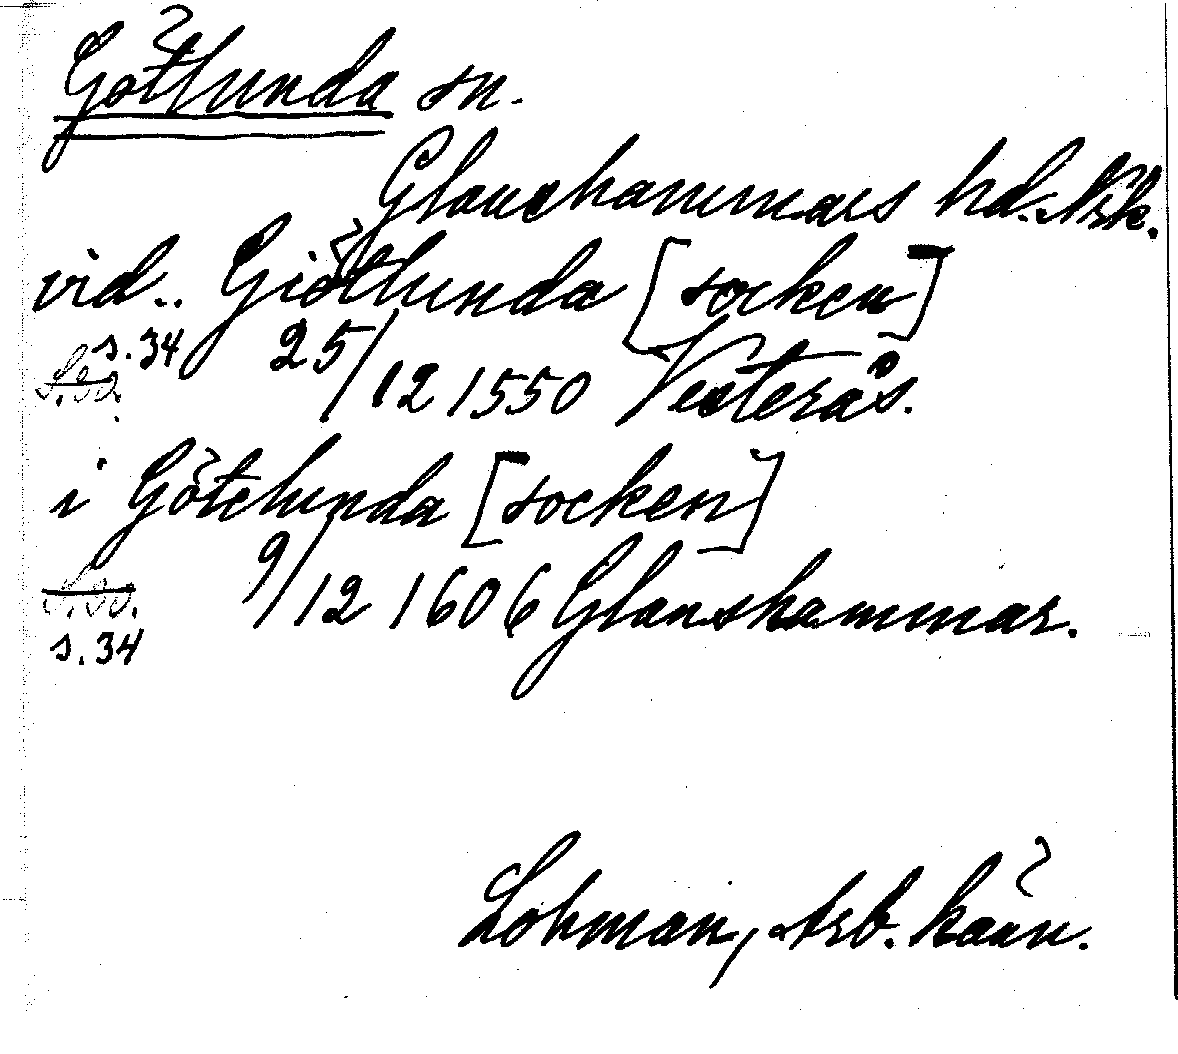 Götlunda sn.
Glanshammars hd. Nrk.
vid.. Giötlunda [socken]
s.34 25/12 1550 Vesterås.
i Götelunda [socken]
9/12 1606 Glanshammar.
s.34
Lohman, Arb. känn.